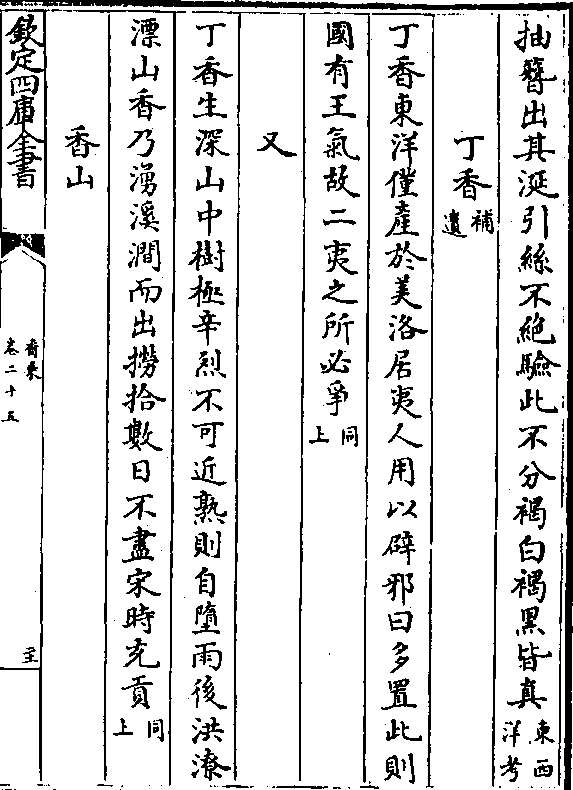 抽簮出其涎引絲不絶驗此不分褐白褐黒皆真東西洋考
丁香補遺
丁香東洋僅產於美洛居夷人用以辟邪曰多置此則
國有王氣故二夷之所必爭同上
又
丁香生深山中樹極辛烈不可近熟則自墮雨後洪潦
漂山香乃湧溪澗而出撈拾數日不盡宋時充貢同上
香山
欽定四庫全書
香乗
卷二十五